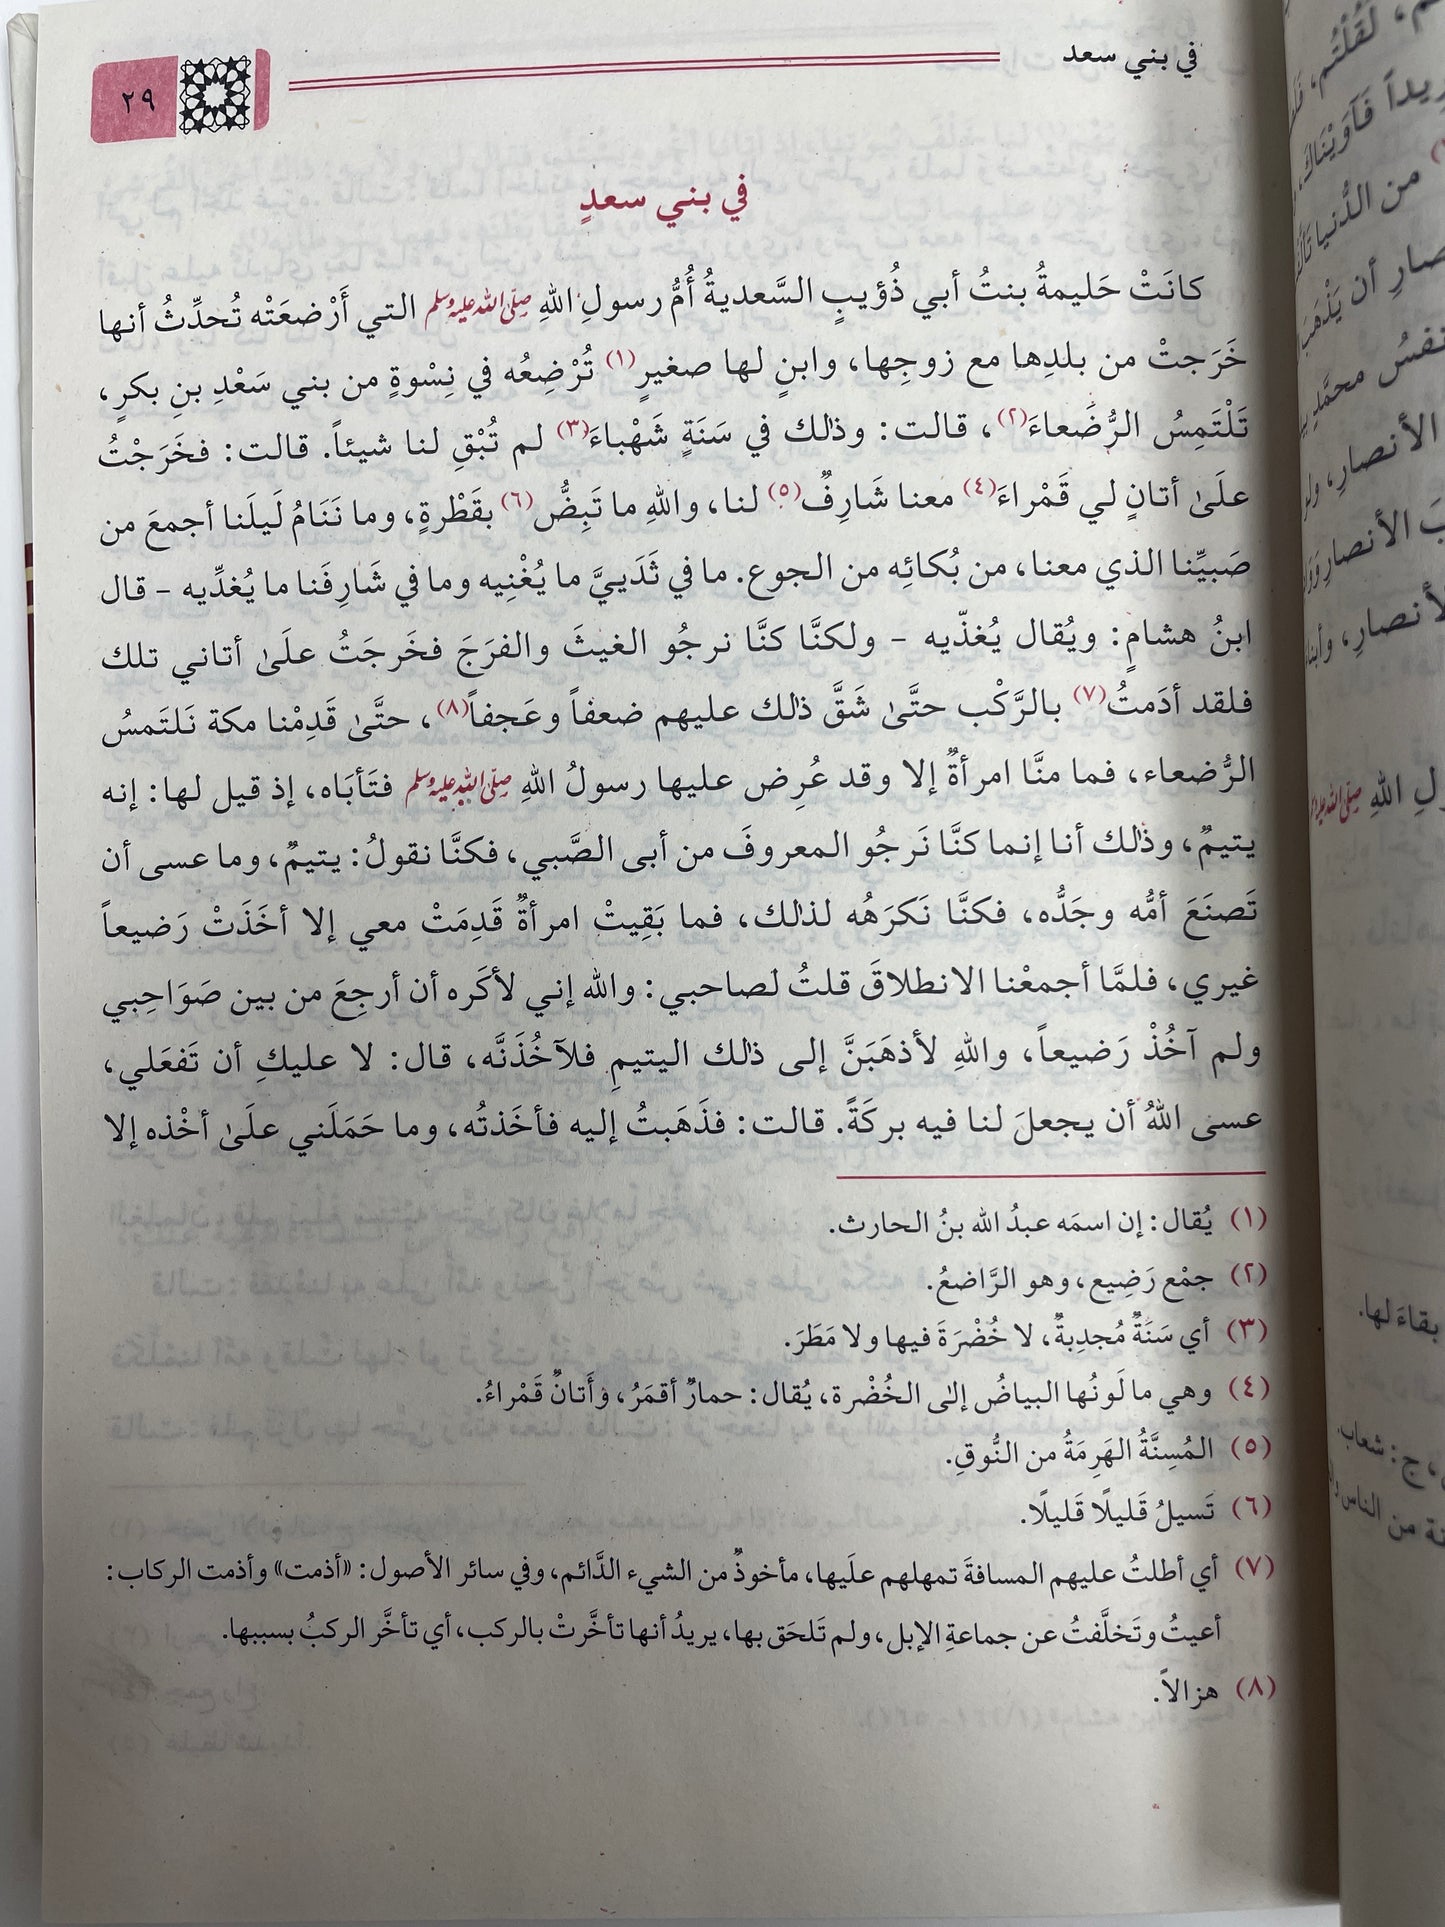 في بني سعد
٢٩
في بني سعدٍ
كانَتْ حَليمةُ بنتُ أبي ذُؤيبٍ السَّعديةُ أُمُّ رسولِ اللهِ صلى الله عليه وسلم التي أَرْضعَتْه تُحدِّثُ أنها
خَرَجتْ من بلدِها مع زوجِها، وابنٍ لها صغيرٍ(١) تُرْضِعُه في نِسْوةٍ من بني سَعْدِ بنِ بكرٍ،
تَلْتَمِسُ الرُّضَعاءَ(٢)، قالت: وذلك في سَنَةٍ شَهْباءَ(٣) لم تُبْقِ لنا شيئاً. قالت: فخَرَجْتُ
علَىٰ أتانٍ لي قَمْراءَ(٤) معنا شَارِفٌ(٥) لنا، واللهِ ما تَبِضُّ(٦) بقَطْرةٍ، وما نَنَامُ لَيلَنا أجمعَ من
صَبيِّنا الذي معنا، من بُكائِه من الجوع. ما في ثَدَييَّ ما يُغْنِيه وما في شَارِفَنا ما يُغدِّيه - قال
ابنُ هشامٍ: ويُقال يُغذّيه - ولكنَّا كنَّا نرجُو الغيثَ والفرَجَ فخَرجَتُ علَىٰ أتاني تلك
فلقد أدَمتُ(٧) بالرَّكْب حتَّىٰ شَقَّ ذلك عليهم ضعفاً وعَجفاً(٨)، حتَّىٰ قَدِمْنا مكة نَلتَمسُ
الرُّضعاء، فما منَّا امرأةٌ إلا وقد عُرِض عليها رسولُ اللهِ صلى الله عليه وسلم فتَأبَاه، إذ قيل لها: إنه
يتيمٌ، وذلك أنا إنما كنَّا نَرجُو المعروفَ من أبى الصَّبي، فكنَّا نقولُ: يتيمٌ، وما عسى أن
تَصنَعَ أمُّه وجَدُّه، فكنَّا نَكرَهُه لذلك، فما بَقِيتْ امرأةٌ قَدِمَتْ معي إلا أخَذَتْ رَضيعاً
غيري، فلمَّا أجمعْنا الانطلاقَ قلتُ لصاحبي: والله إني لأكَره أن أرجِعَ من بين صَوَاحِبي
ولم آخُذْ رَضيعاً، واللهِ لأذهَبَنَّ إلى ذلك اليتيمِ فلآخُذَنَّه، قال: لا عليكِ أن تَفعَلي،
عسى اللهُ أن يجعلَ لنا فيه بركَةً. قالت: فذَهَبتُ إليه فأخَذتُه، وما حَمَلَني علَىٰ أخْذه إلا
(١) يُقال: إن اسمَه عبدُ الله بنُ الحارث.
(٢) جمْع رَضِيع، وهو الرَّاضعُ.
(٣) أي سَنَةٌ مُجدِبةٌ، لا خُضْرَةَ فيها ولا مَطَرَ.
(٤) وهي ما لَونُها البياضُ إلى الخُضْرة، يُقال: حمارٌ أقمَرُ، وأَتانٌ قَمْراءُ.
(٥) المُسِنَّةُ الهَرِمَةُ من النُّوقِ.
(٦) تَسيلُ قَليلًا قَليلًا.
(٧) أي أطلتُ عليهم المسافةَ تمهلهم علَيها، مأخوذٌ من الشيء الدَّائم، وفي سائر الأصول: «أذمت» وأذمت الركاب:
أعيتُ وتَخلَّفتُ عن جماعةِ الإبل، ولم تَلحَق بها، يريدُ أنها تأخَّرتْ بالركب، أي تأخَّر الركبُ بسببها.
(٨) هزالاً.
من الدُّنيا
نفسُ محمَّدٍ
الأنصارِ،
الأنصارِ
اللهِ صلى الله عليه وسلم
بقاءَ لها.
ج: شعاب.
من الناس